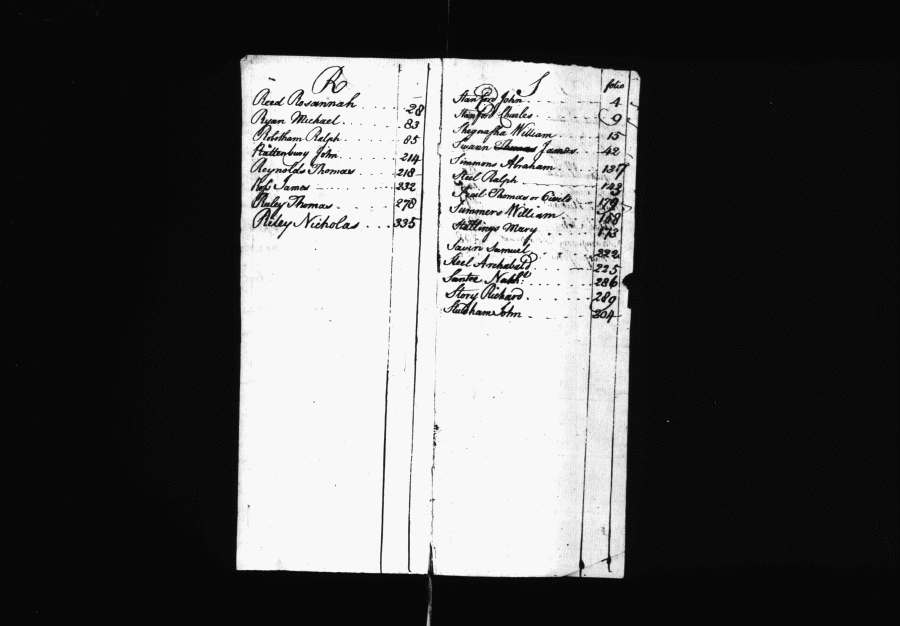 R
Reed Rosannah 28
Ryan Michael 83
Robotham Ralph 85
Rattenbury John 214
Reynolds Thomas 218
Ross James 232
Ruley Thomas 278
Reley Nicholas 335
S folio
Stanford John 4
Stanford Charles 9
William 15
Swann Thomas James 42
Simmons Abraham 137
Steel Ralph 143
Thomas or 179
Summers William 158
Stallings Mary 173
Savin Samuel 222
Steel Archabald 225
Santee 286
Story Richard 289
John 304